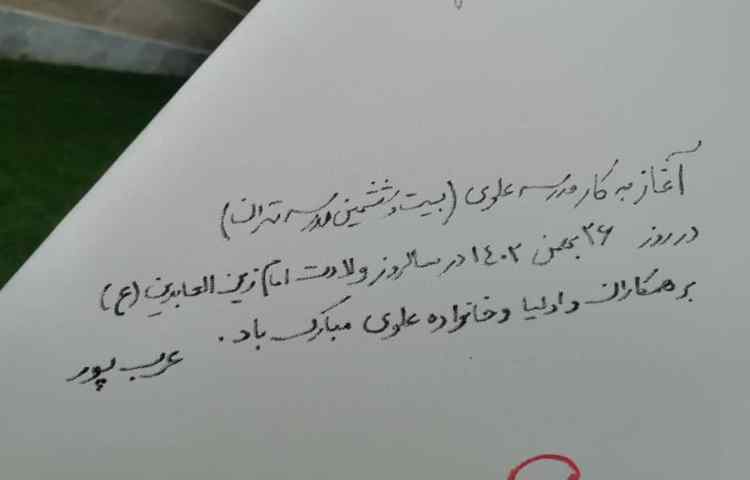 آغاز به کار مدرسه علوی (بیست و ششمین مدرسه تهران)
در روز ۲۶ بهمن ۱۴۰۲ در سالروز ولادت امام زین العابدین (ع)
بر همکاران و اولیا و خانواده علوی مبارک باد.
عرب پور